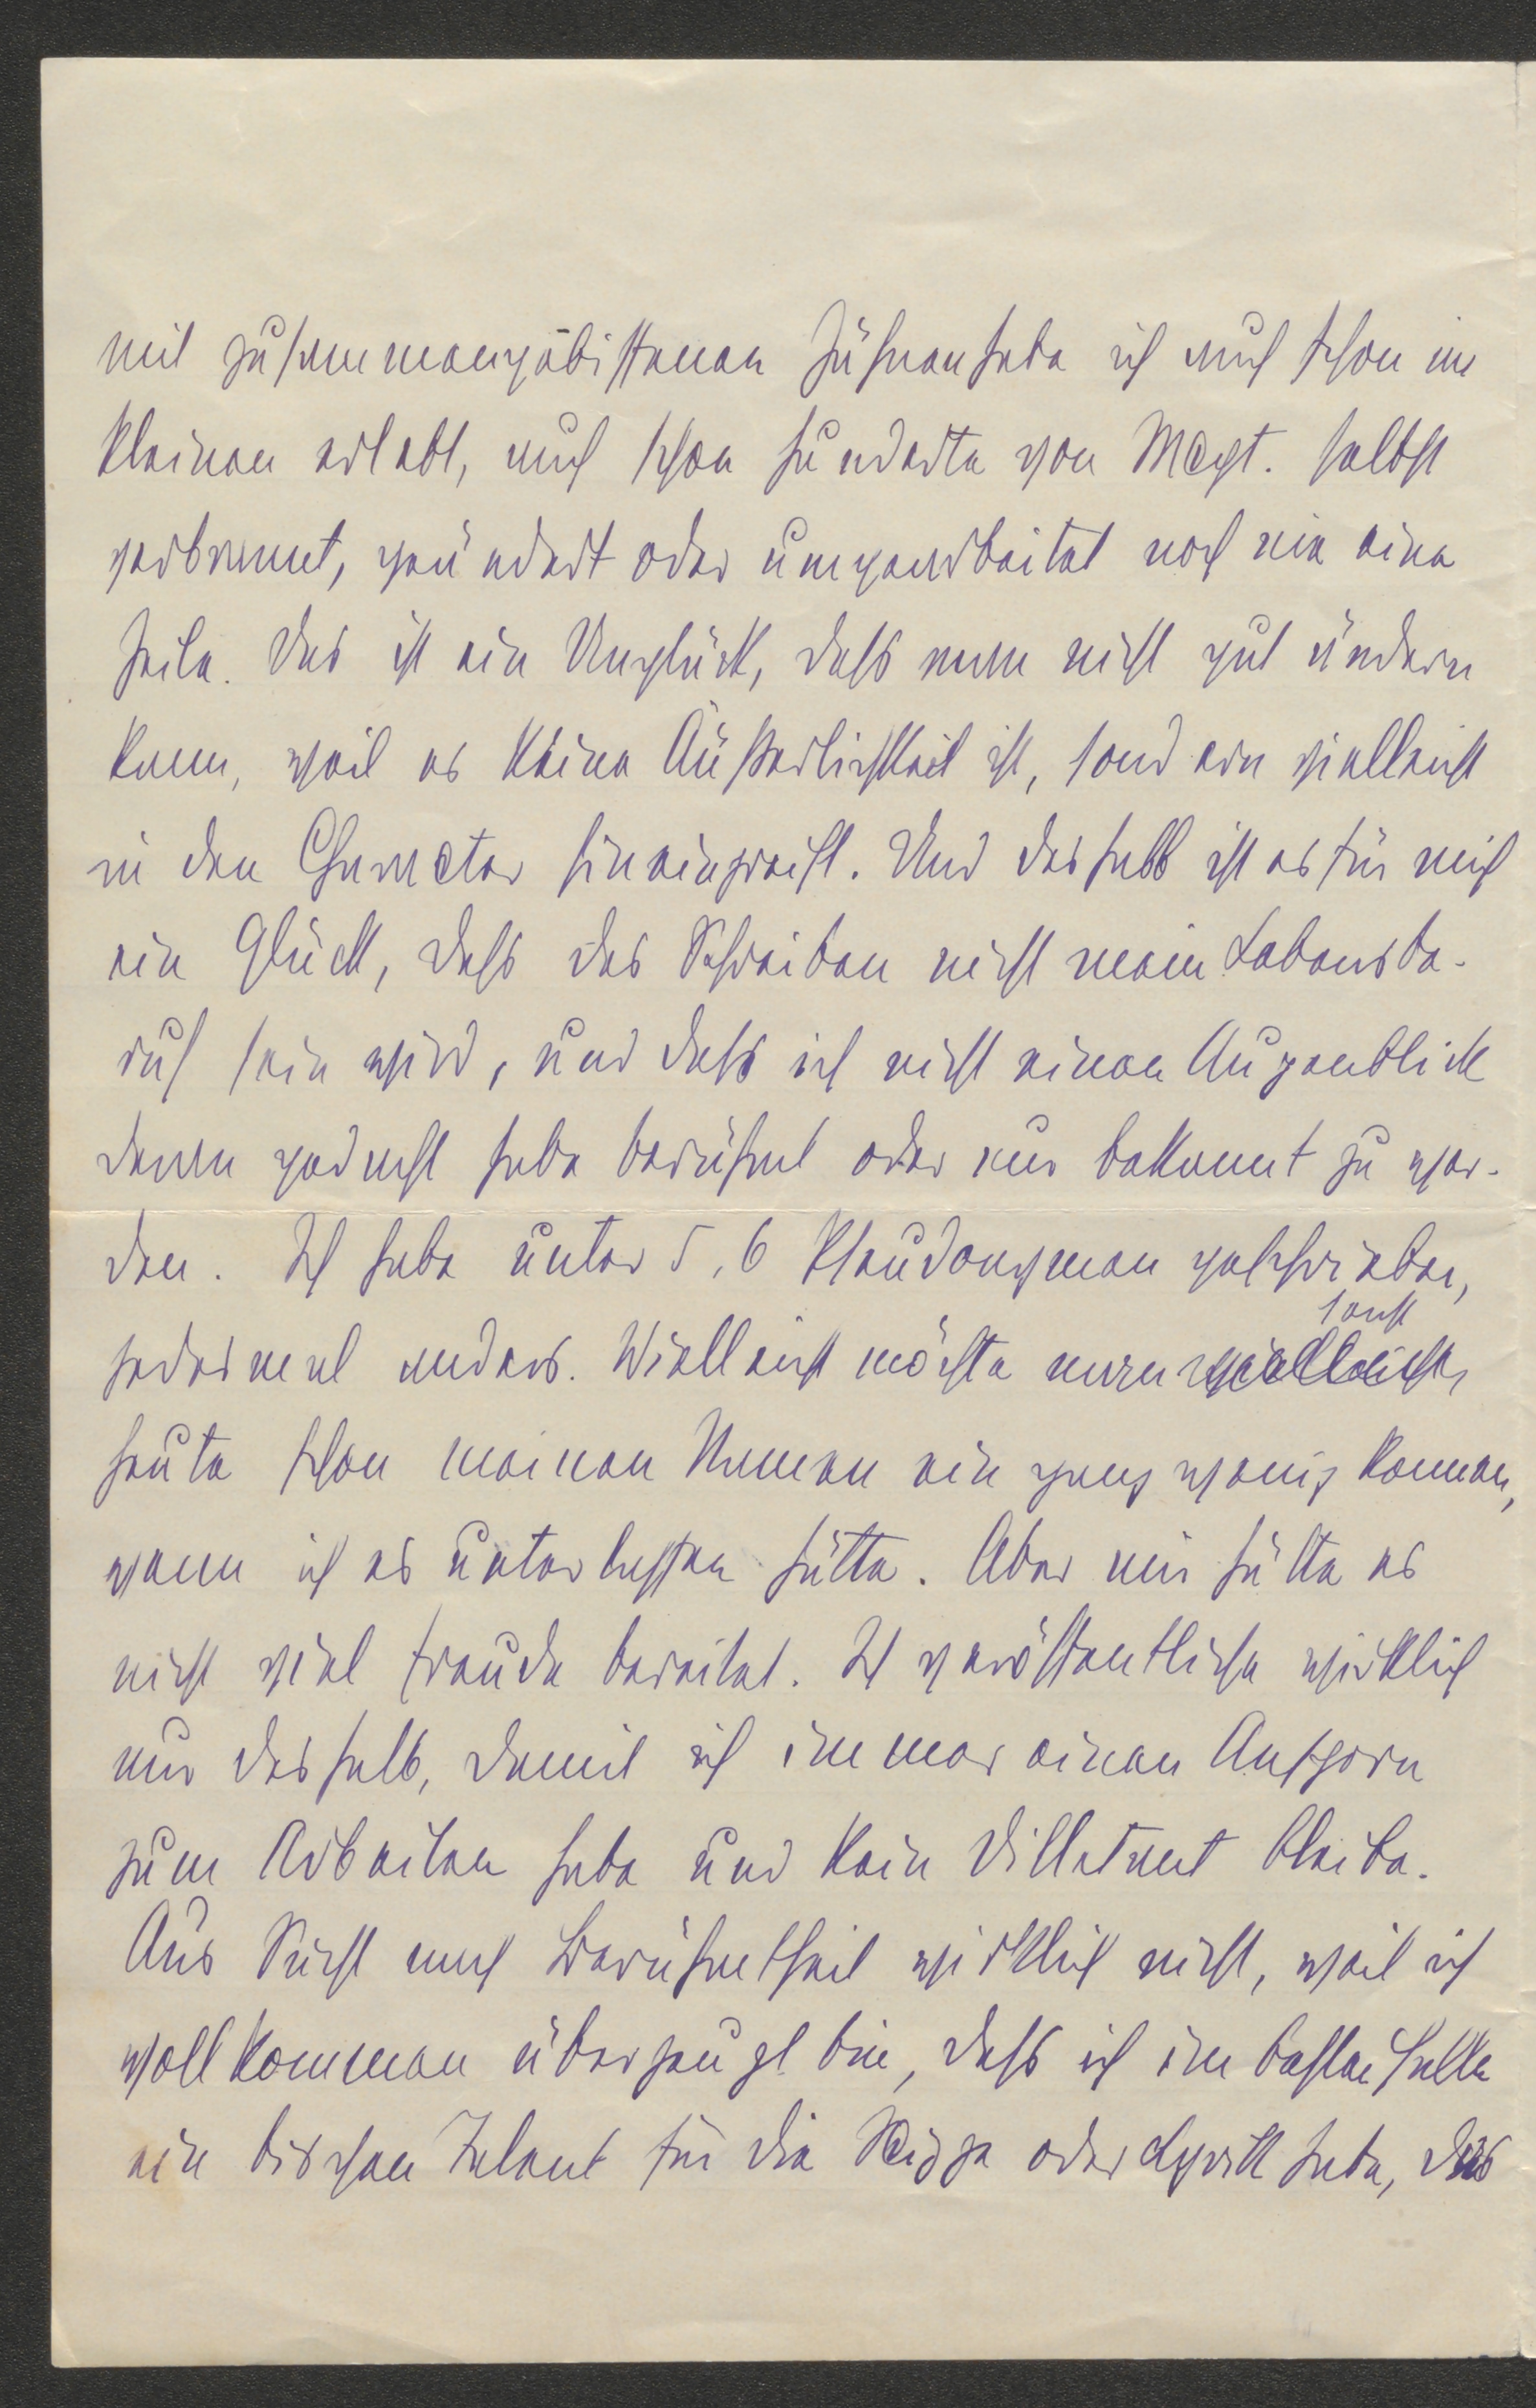 mit zusammengebissenen Zähnen habe ich auch schon im
Kleinen erlebt, auch schon hunderte von Mscpt. selbst
verbrannt, geändert oder umgearbeitet noch nie eine
Zeile. Das ist ein Unglück, dass man nicht gut ändern
kann, weil es keine Äußerlichkeit ist, sondern vielleicht
in den Character hineingreift. Und deshalb ist es für mich
ein Glück, dass das Schreiben nicht mein Lebensbe-
ruf sein wird, und dass ich nicht einen Augenblick
daran gedacht habe berühmt oder nur bekannt zu wer-
den. Ich habe unter 5, 6 Pseudonymen geschrieben,
jedesmal anders. Vielleicht möchte man vielleicht sonst
heute schon meinen Namen ein ganz wenig kennen,
wenn ich es unterlassen hätte. Aber mir hätte es
nicht viel Freude bereitet. Ich veröffentliche wirklich
nur deshalb, damit ich immer einen Ansporn
zum Arbeiten habe und kein Dilletant bleibe.
Aus Sucht nach Berühmtheit wirklich nicht, weil ich
vollkommen überzeugt bin, dass ich im besten Falle
ein bischen Talent für die Skizze oder Lyrik habe, das